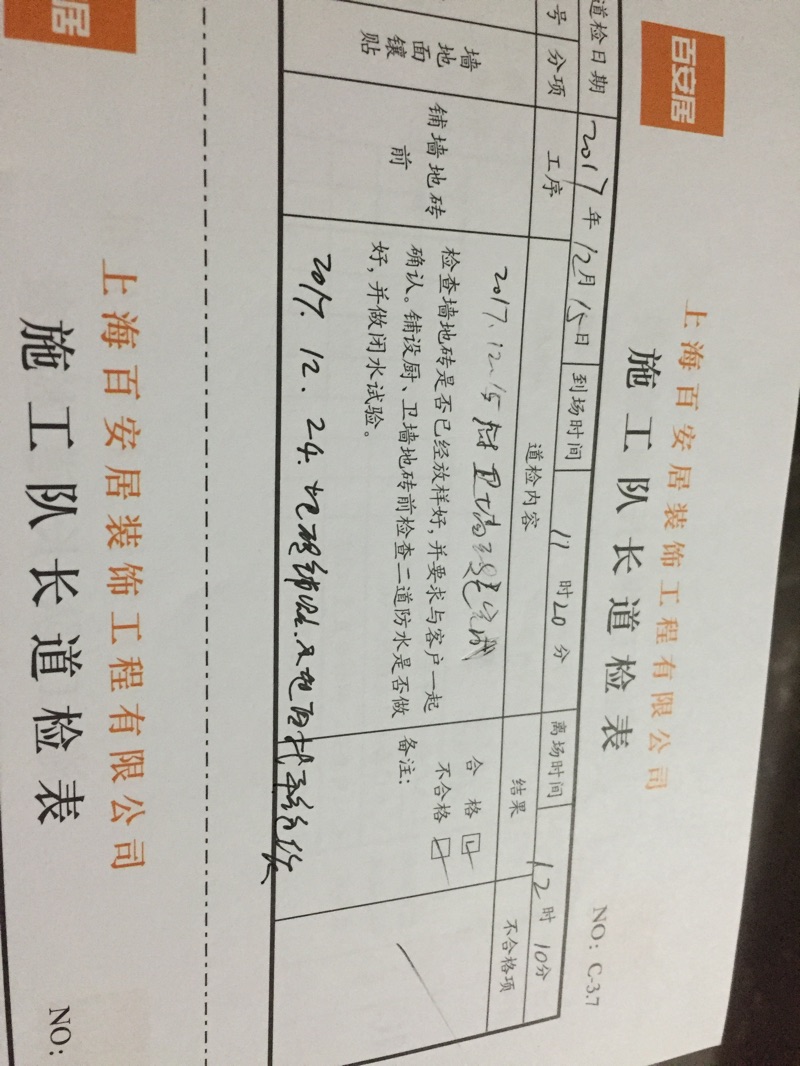 百安居
上海百安居装饰工程有限公司
施工队长道检表
NO: C-3.7
道检日期 2017年12月15日 到场时间 11时20分 离场时间 12时10分
号 分项 工序 道检内容 结果 不合格项
墙地面镶贴
铺墙地砖前
2017.12.15 厨卫墙
检查墙地砖是否已经放样好,并要求与客户一起
确认。铺设厨、卫墙地砖前检查二道防水是否做
好,并做闭水试验。
合格
不合格
备注:
2017.12.24.地砖铺贴
居
上海百安居装饰工程有限公司
施工队长道检表
NO: